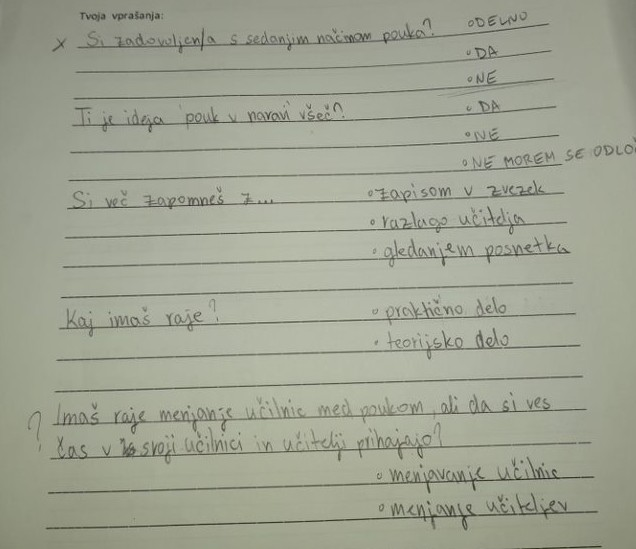 Tvoja vprašanja:
x Si zadovoljen/a s sedanjim načinom pouka? ◦ DELNO
◦ DA
◦ NE
Ti je ideja "pouk v naravi" všeč? ◦ DA
◦ NE
◦ NE MOREM SE ODLO
Si več zapomneš z... ◦ zapisom v zvezek
◦ razlago učitelja
◦ gledanjem posnetka
Kaj imaš raje? ◦ praktično delo
◦ teorijsko delo
? Imaš raje menjanje učilnic med poukom, ali da si ves
čas v svoji učilnici in učitelji prihajajo?
◦ menjavanje učilnic
◦ menjanje učiteljev